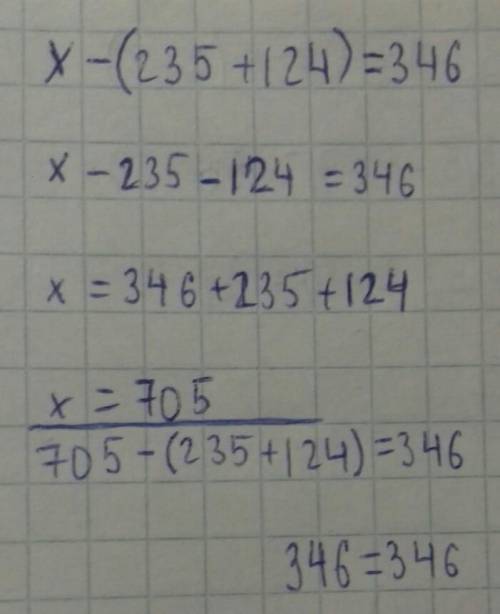 x-(235+124)=346
x-235-124=346
x=346+235+124
x=705
705-(235+124)=346
346=346